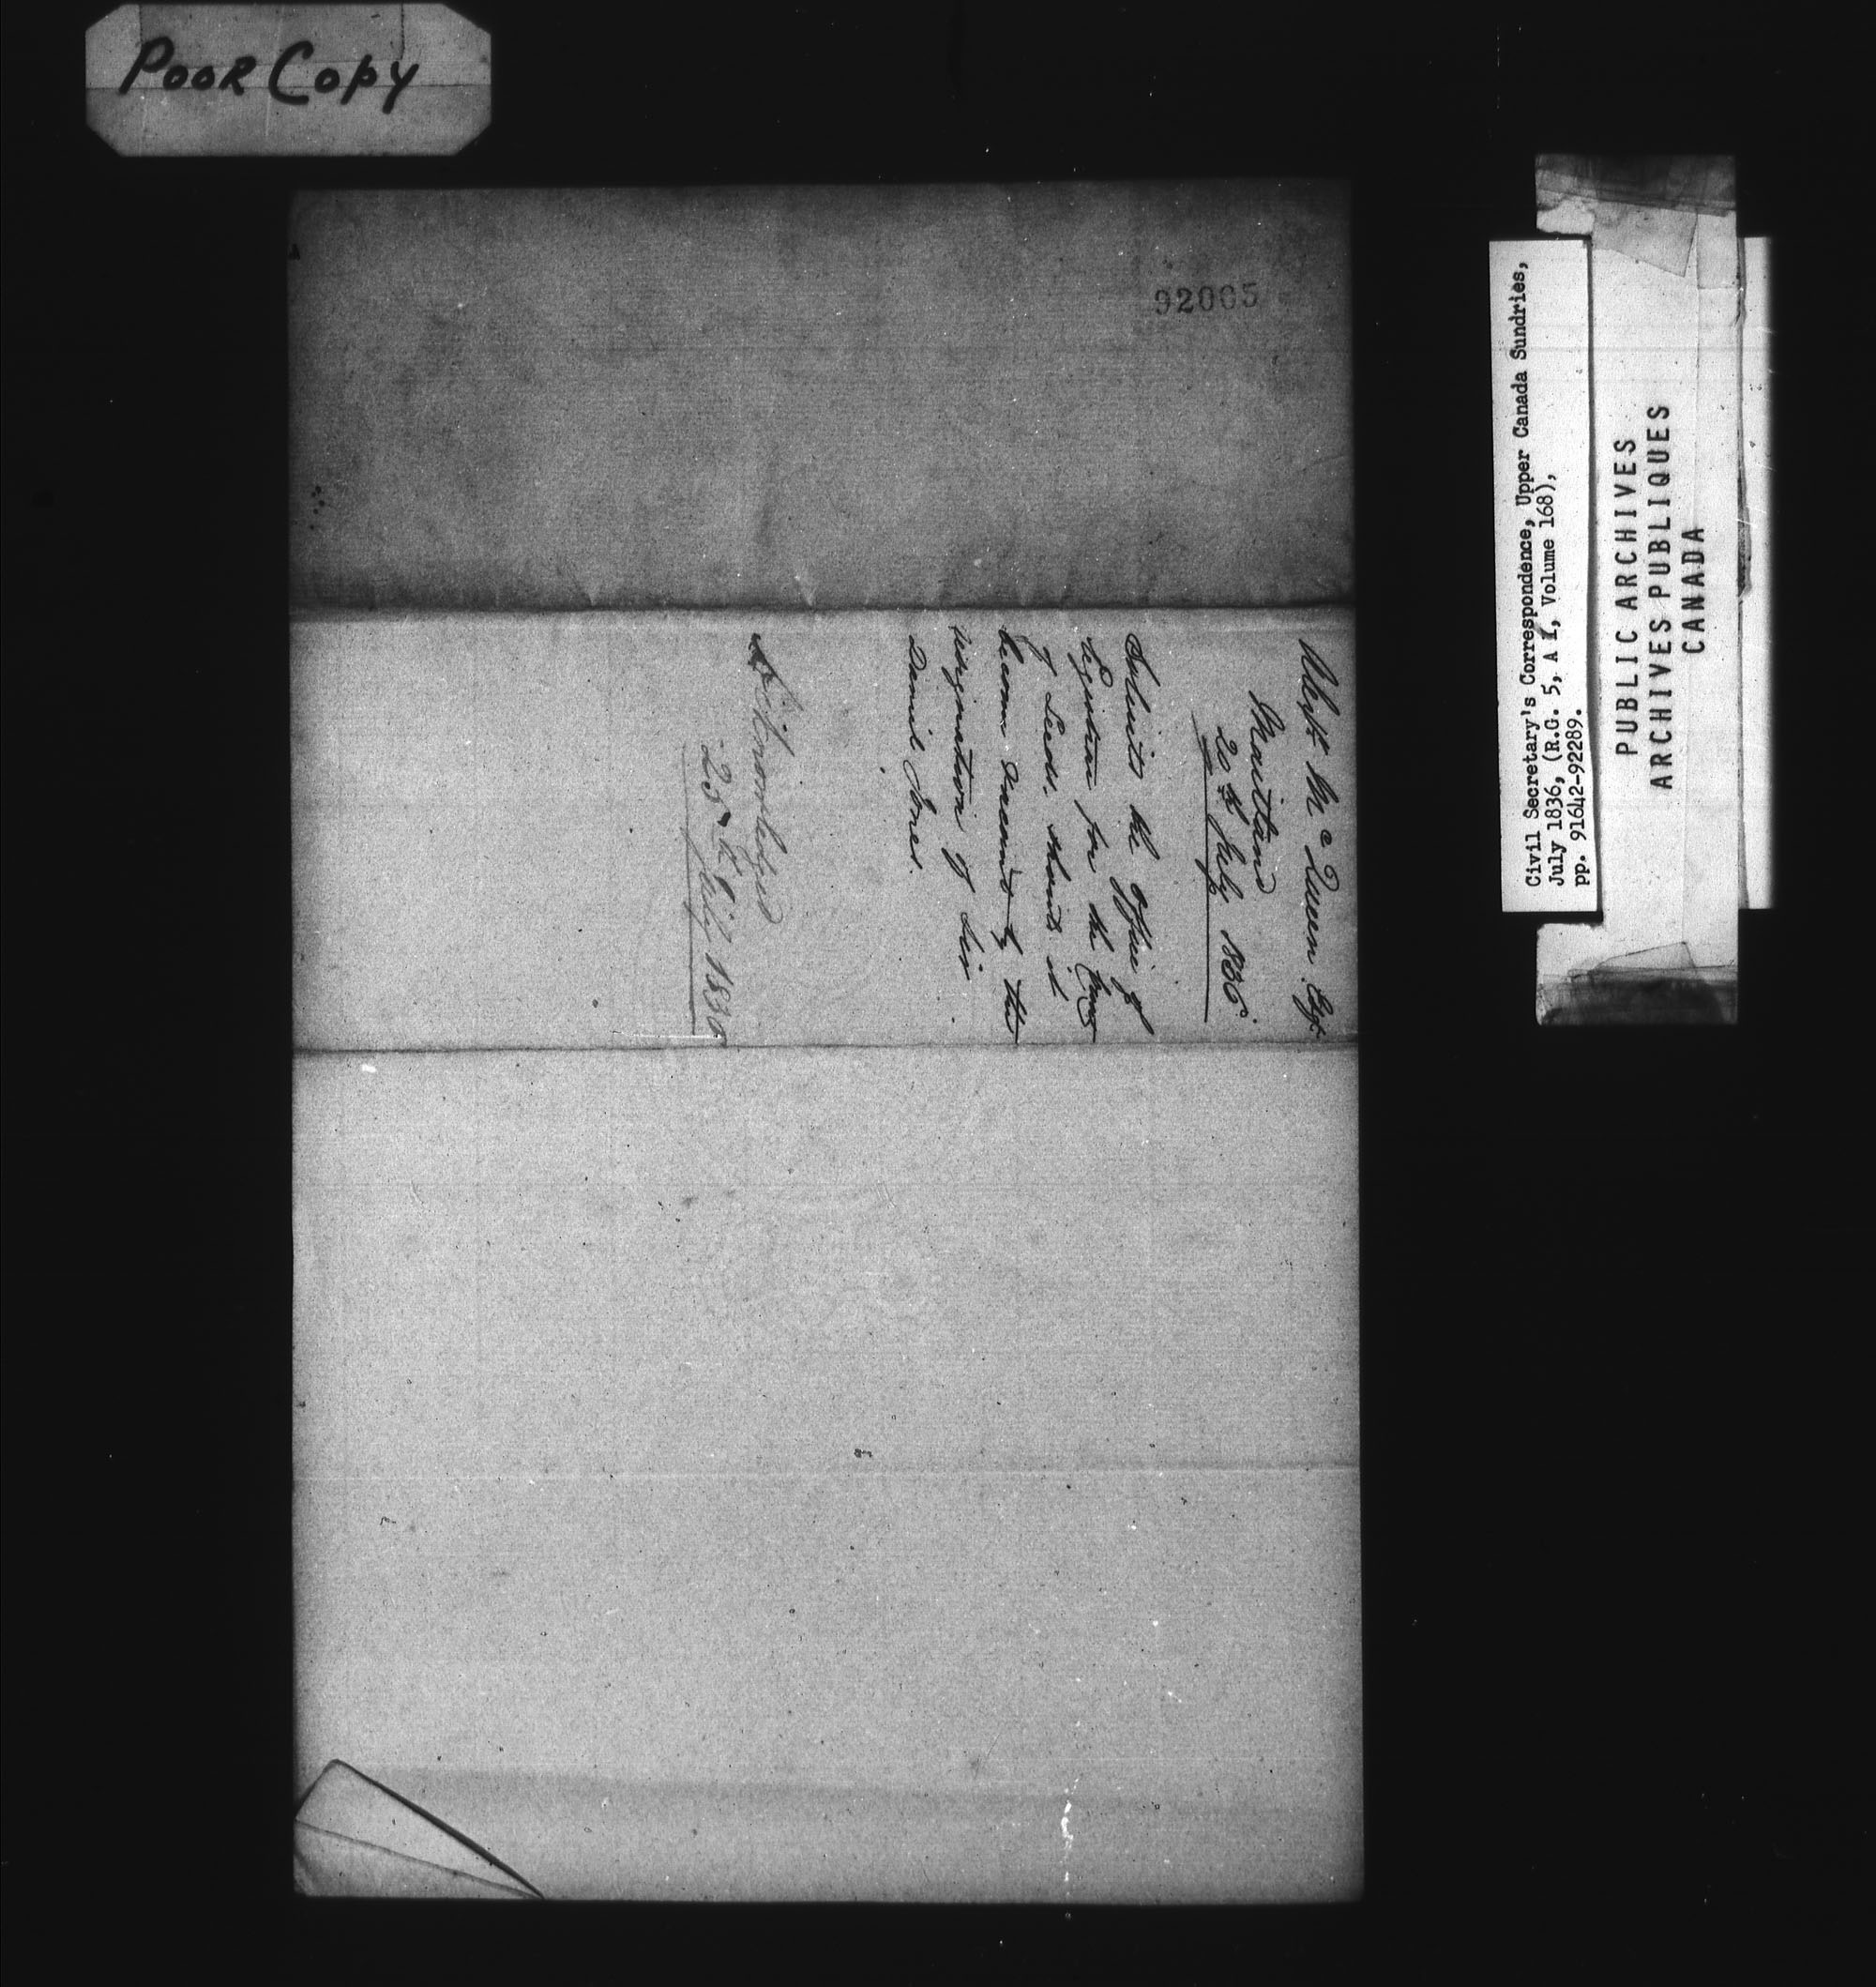 POOR COPY
92005
Alexr McQueen Esqr
Maitland
20th July 1836.
Solicits the office of
Register for the County
of Leeds. should it
become vacant by the
resignation of his
Daniel Jones.
Acknowledged
25th July 1836
Civil Secretary's Correspondence, Upper Canada Sundries,
July 1836, (R.G. 5, A 1, Volume 168),
pp. 91642-92289.
PUBLIC ARCHIVES
ARCHIVES PUBLIQUES
CANADA